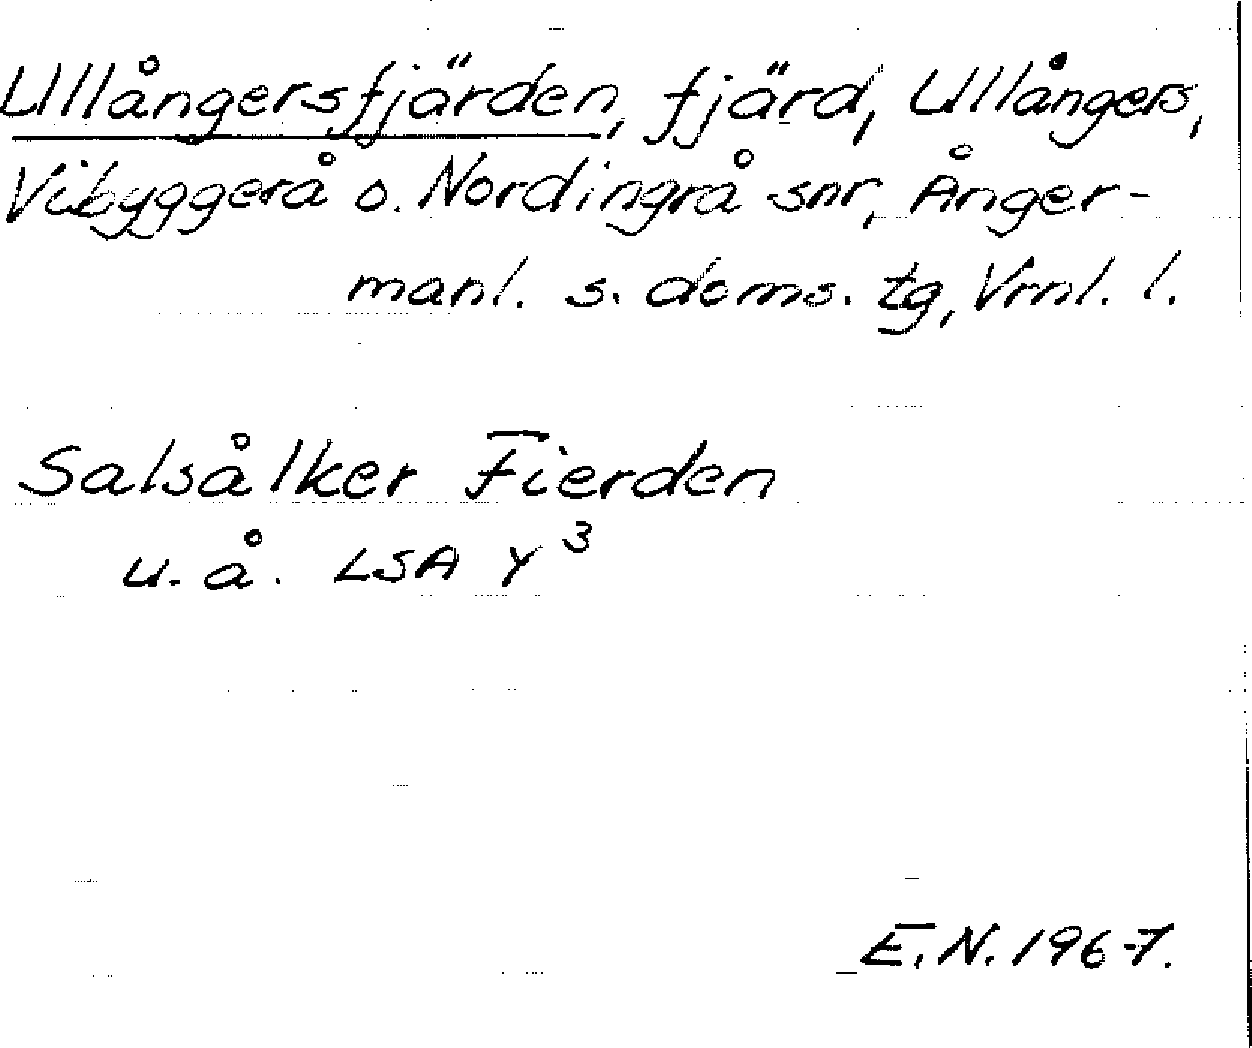 Ullångersfjärden, fjärd, Ullångers,
Vibyggerå o. Nordingrå snr, Ånger-
manl. s. doms. tg, Vrnl. l.
Salsålker Fierden
u. å. LSA Y 3
E.N. 1967.